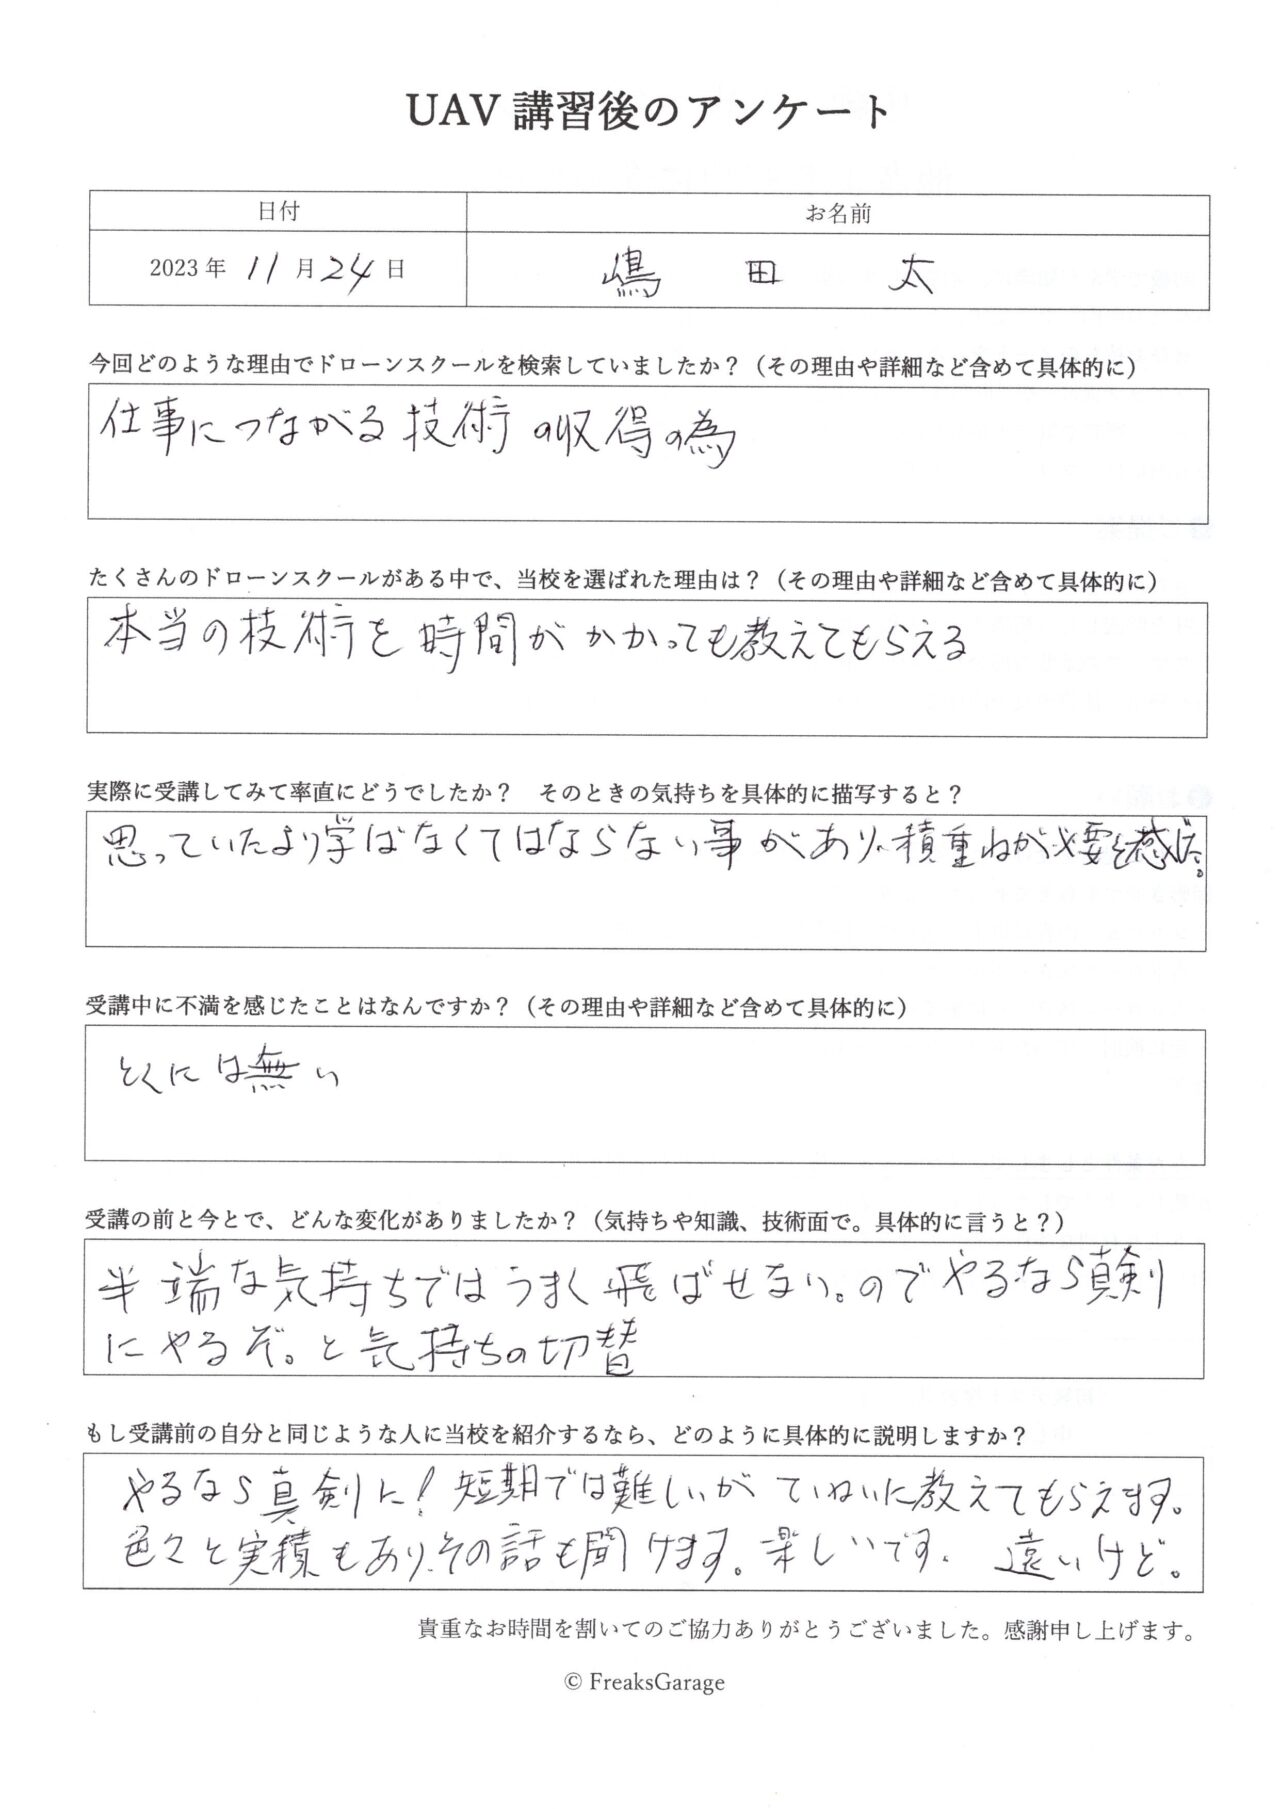 UAV 講習後のアンケート
日付 お名前
2023年 11月24日 嶋田 太
今回どのような理由でドローンスクールを検索していましたか？（その理由や詳細など含めて具体的に）
仕事につながる技術の収得の為
たくさんのドローンスクールがある中で、当校を選ばれた理由は？（その理由や詳細など含めて具体的に）
本当の技術を時間がかかっても教えてもらえる
実際に受講してみて率直にどうでしたか？　そのときの気持ちを具体的に描写すると？
思っていたより学ばなくてはならない事があり、積重ねが必要を感じた。
受講中に不満を感じたことはなんですか？（その理由や詳細など含めて具体的に）
とくには無い
受講の前と今とで、どんな変化がありましたか？（気持ちや知識、技術面で。具体的に言うと？）
半端な気持ちではうまく飛ばせない。のでやるなら真剣
にやるぞ。と気持ちの切替
もし受講前の自分と同じような人に当校を紹介するなら、どのように具体的に説明しますか？
やるなら真剣に！短期では難しいがていねいに教えてもらえます。
色々と実積もあり、その話も聞けます。楽しいです。 遠いけど。
貴重なお時間を割いてのご協力ありがとうございました。感謝申し上げます。
© FreaksGarage